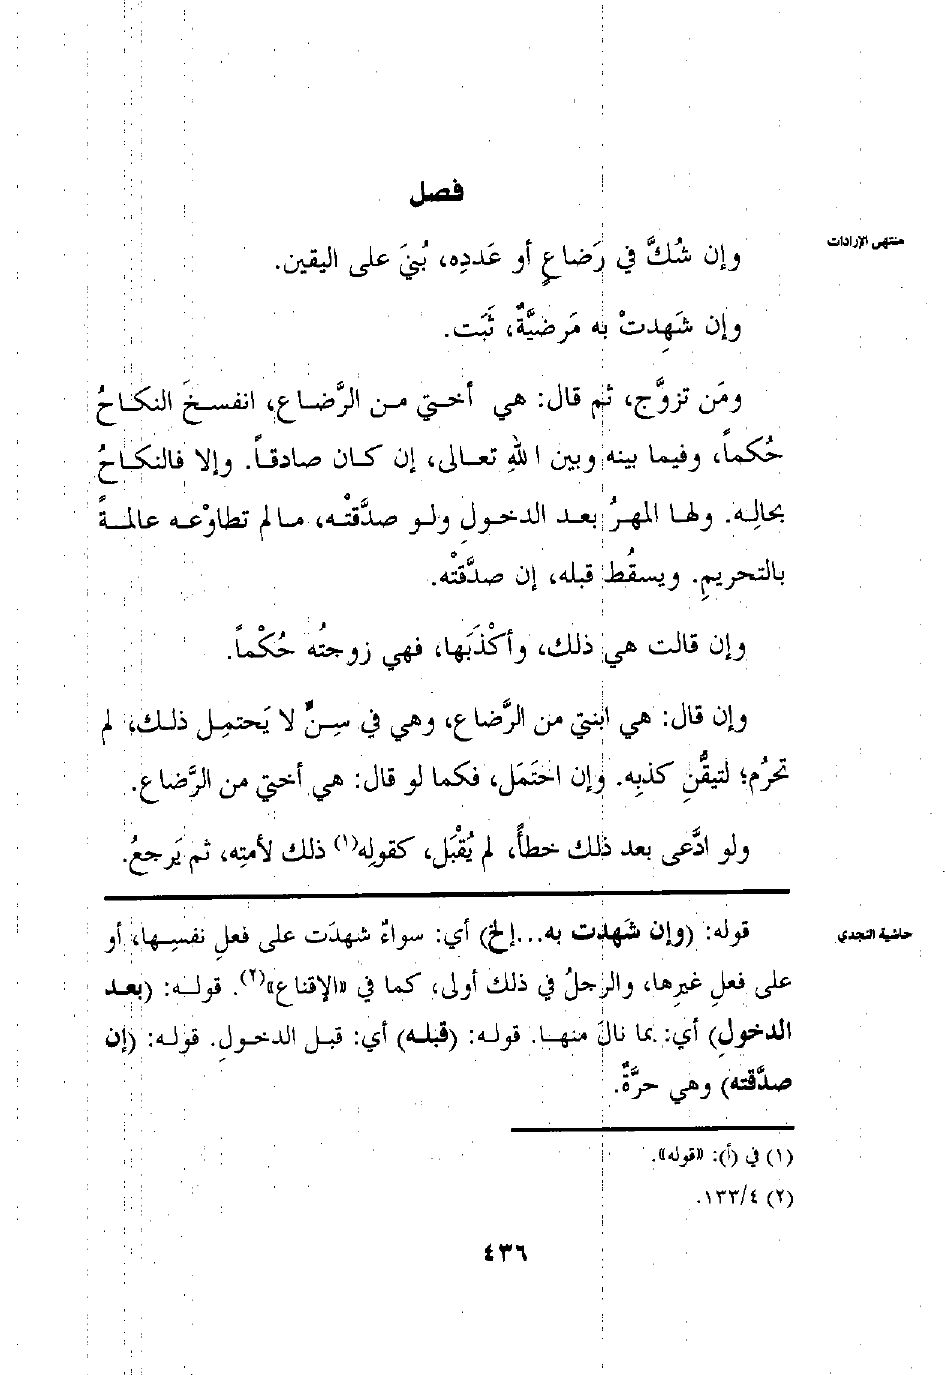 فصل
منتهى الإرادات
وإن شُكَّ في رَضاعٍ أو عَددِه، بُنيَ على اليقين.
وإن شَهِدتْ به مَرضيَّةٌ، ثَبَت.
ومَن تزوَّج، ثم قال: هي أختي من الرَّضاع، انفسخَ النكاحُ
حُكماً، وفيما بينه وبين اللهِ تعالى، إن كان صادقاً. وإلا فالنكاحُ
بحالِه. ولها المهرُ بعد الدخولِ ولو صدَّقتْه، مالم تطاوْعه عالمةً
بالتحريمِ. ويسقُط قبله، إن صدَّقتْه.
وإن قالت هي ذلك، وأكْذَبَها، فهي زوجتُه حُكْماً.
وإن قال: هي ابنتي من الرَّضاع، وهي في سِنٍّ لا يَحتمِل ذلك، لم
تحرُم؛ لتيقُّنِ كذبِه. وإن احتَمَل، فكما لو قال: هي أختي من الرَّضاع.
ولو ادَّعى بعد ذلك خطأً، لم يُقْبَل، كقولِه(١) ذلك لأمتِه، ثم يَرجعُ.
حاشية النجدي
قوله: (وإن شَهدت به...إلخ) أي: سواءٌ شهدَت على فعلِ نفسِها، أو
على فعلِ غيرِها، والرجلُ في ذلك أولى، كما في «الإقناع»(٢). قوله: (بعد
الدخولِ) أي: بما نالَ منها. قوله: (قبله) أي: قبل الدخولِ. قوله: (إن
صدَّقته) وهي حرَّةٌ.
(١) في (أ): «قوله».
(٢) ١٣٣/٤.
٤٣٦